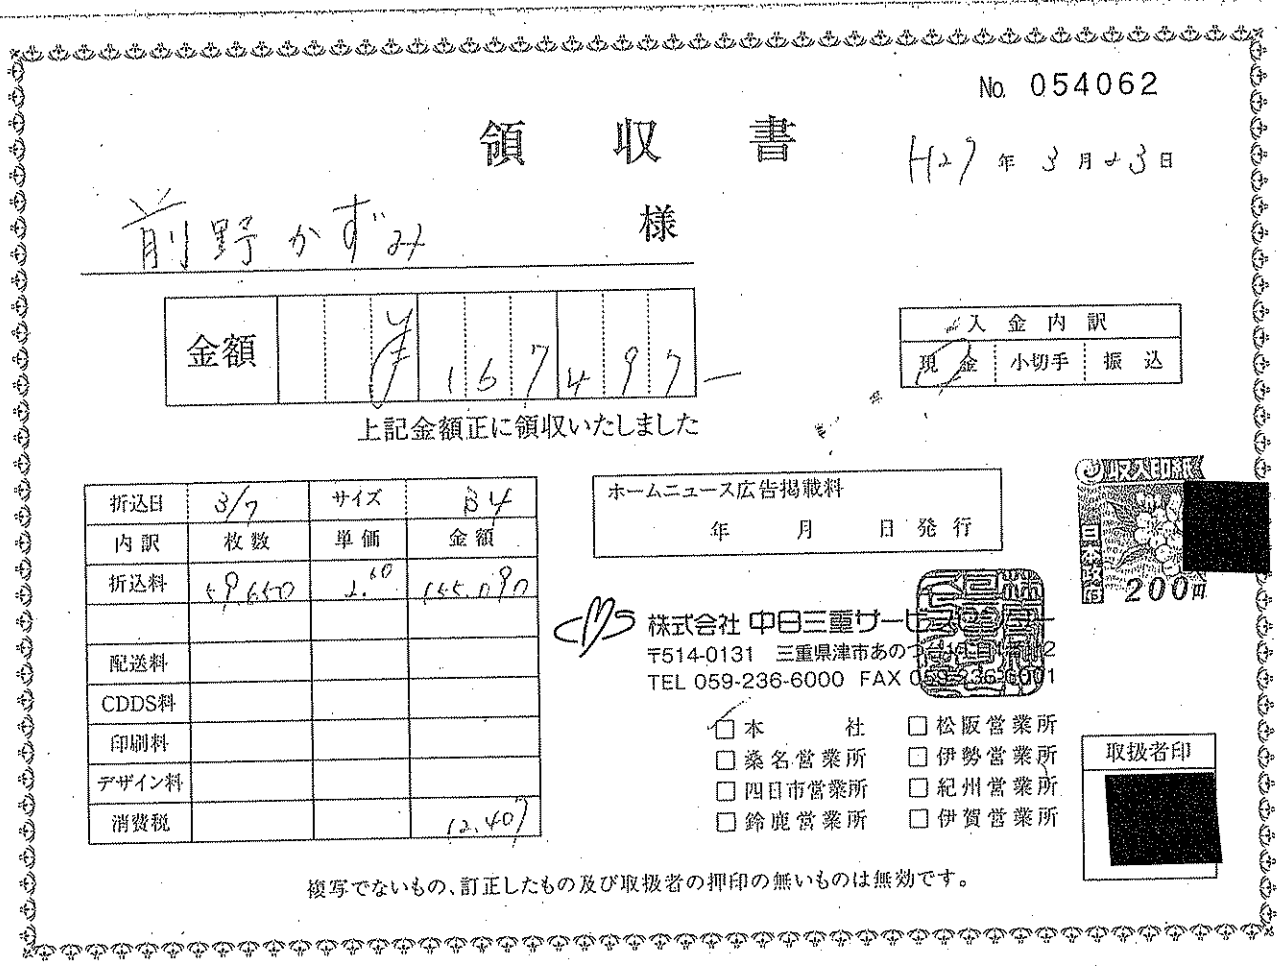 No. 054062
領収書
H27年3月23日
前野かずみ 様
金額 ¥167497－
入金内訳
現金 小切手 振込
上記金額正に領収いたしました
折込日 3/7 サイズ B4
内訳 枚数 単価 金額
折込料 59,650 2.60 155,090
配送料
CDDS料
印刷料
デザイン料
消費税 12,407
ホームニュース広告掲載料
年 月 日発行
収入印紙
200円
株式会社 中日三重サービスセンター
〒514-0131 三重県津市あのつ台
TEL 059-236-6000 FAX 059-236-6001
□本社 □松阪営業所
□桑名営業所 □伊勢営業所
□四日市営業所 □紀州営業所
□鈴鹿営業所 □伊賀営業所
取扱者印
複写でないもの、訂正したもの及び取扱者の押印の無いものは無効です。